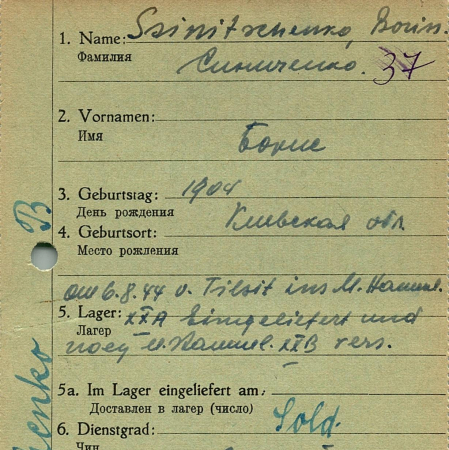 1. Name: Szinitschenko, Boris.
Фамилия
Синиченко. 37
2. Vornamen:
Имя
Борис
3. Geburtstag: 1904
День рождения
Киевская обл.
4. Geburtsort:
Место рождения
am 6.8.44 v. Tilsit ins M. Stamml.
5. Lager: XXA Eingeliefert und
Лагер
M. Stamml. XXB vers.
5a. Im Lager eingeliefert am:
Доставлен в лагер (число)
6. Dienstgrad: Sold.
Чин
B
enko